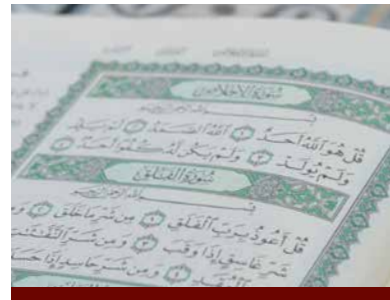 سُورَةُ الإِخْلَاصِ
بِسْمِ اللَّهِ الرَّحْمَٰنِ الرَّحِيمِ
قُلْ هُوَ ٱللَّهُ أَحَدٌ ١ ٱللَّهُ ٱلصَّمَدُ ٢ لَمْ يَلِدْ
وَلَمْ يُولَدْ ٣ وَلَمْ يَكُن لَّهُۥ كُفُوًا أَحَدٌۢ ٤
سُورَةُ الفَلَقِ
بِسْمِ اللَّهِ الرَّحْمَٰنِ الرَّحِيمِ
قُلْ أَعُوذُ بِرَبِّ ٱلْفَلَقِ ١ مِن شَرِّ مَا خَلَقَ ٢ وَمِن
شَرِّ غَاسِقٍ إِذَا وَقَبَ ٣ وَمِن شَرِّ ٱلنَّفَّٰثَٰتِ
ٱلْعُقَدِ ٤ وَمِن شَرِّ حَاسِدٍ إِذَا حَسَدَ